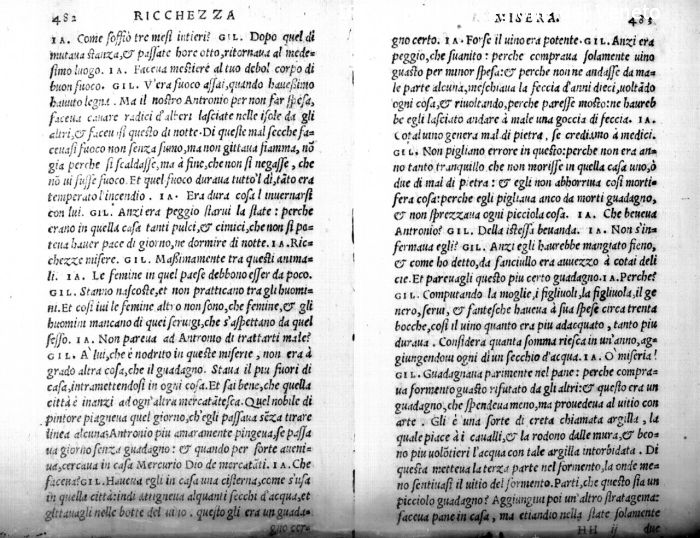 482 RICCHEZZA
IA. Come soffiò tre mesi intieri? GIL. Dopo quel dì
mutaua stanza, & passate hore otto, ritornaua al mede-
simo luogo. IA. Faceua mestiere al tuo debol corpo di
buon fuoco. GIL. V'era fuoco assai, quando hauessimo
hauuto legna. Ma il nostro Antronio per non far spesa,
faceua cauare radici d'alberi lasciate nelle isole da gli
altri, & faceuasi questo di notte. Di queste mal secche fa-
ceuasi fuoco non senza fumo, ma non gittaua fiamma, nõ
gia perche si scaldasse, ma à fine, che non si negasse, che
nõ ui fusse fuoco. Et quel fuoco duraua tutto'l dì, tãto era
temperato l'incendio. IA. Era dura cosa l'inuernarsi
con lui. GIL. Anzi era peggio starui la state: perche
erano in quella casa tanti pulci, & cimici, che non si po-
teua hauer pace di giorno, ne dormire di notte. IA. Ric-
chezze misere. GIL. Maßimamente tra questi anima-
li. IA. Le femine in quel paese debbono esser da poco.
GIL. Stanno nascoste, et non pratticano tra gli huomi-
ni. Et così iui le femine altro non sono, che femine, & gli
huomini mancano di quei seruigi, che s'aspettano da quel
sesso. IA. Non pareua ad Antronio di trattarti male?
GIL. A' lui, che è nodrito in queste miserie, non era à
grado altra cosa, che il guadagno. Staua il piu fuori di
casa, intramettendosi in ogni cosa. Et sai bene, che quella
città è inanzi ad ogn'altra mercatãtesca. Quel nobile di
pintore piagneua quel giorno, ch'egli passaua sẽza tirare
linea alcuna: Antronio piu amaramente pingeua, se passa
ua giorno senza guadagno: & quando per sorte aueni-
ua, cercaua in casa Mercurio Dio de mercatãti. IA. Che
faceua? GIL. Haueua egli in casa una cisterna, come s'usa
in quella città: indi attigneua alquanti secchi d'acqua, et
gittauagli nelle botte del uino. questo gli era un guada-
gno cer-
MISERA. 483
gno certo. IA. Forse il uino era potente. GIL. Anzi era
peggio, che suanito: perche compraua solamente uino
guasto per minor spesa: & perche non ne andasse da ma-
le parte alcuna, meschiaua la feccia d'anni dieci, uoltãdo
ogni cosa, & riuoltando, perche paresse mosto: ne haureb
be egli lasciato andare à male una goccia di feccia. IA.
Cotal uino genera mal di pietra, se crediamo à medici.
GIL. Non pigliano errore in questo: perche non era an-
no tanto tranquillo che non morisse in quella casa uno, ò
due di mal di pietra: & egli non abhorriua così morti-
fera cosa: perche egli pigliaua anco da morti guadagno,
& non sprezzaua ogni picciola cosa. IA. Che beueua
Antronio? GIL. Della istessa beuanda. IA. Non s'in-
fermaua egli? GIL. Anzi egli haurebbe mangiato fieno,
& come ho detto, da fanciullo era auuezzo à cotai deli
cie. Et pareuagli questo piu certo guadagno. IA. Perche?
GIL. Computando la moglie, i figliuoli, la figliuola, il ge
nero, serui, & fantesche haueua à sua spese circa trenta
bocche, così il uino quanto era piu adacquato, tanto piu
duraua. Considera quanta somma riesca in un'anno, ag-
giungendoui ogni dì un secchio d'acqua. IA. O' miseria!
GIL. Guadagnaua parimente nel pane: perche compra-
ua formento guasto rifutato da gli altri: & questo era un
guadagno, che spendeua meno, ma prouedeua al uitio con
arte. Gli è una sorte di creta chiamata argilla, la
quale piace à i caualli, & la rodono dalle mura, & beo-
no piu uolõtieri l'acqua con tale argilla intorbidata. Di
questa metteua la terza parte nel formento, la onde me
no sentiuasi il uitio del formento. Parti, che questo sia un
picciolo guadagno? Aggiungiui poi un'altro stratagema:
faceua pane in casa, ma etiandio nella state solamente
HH ij due